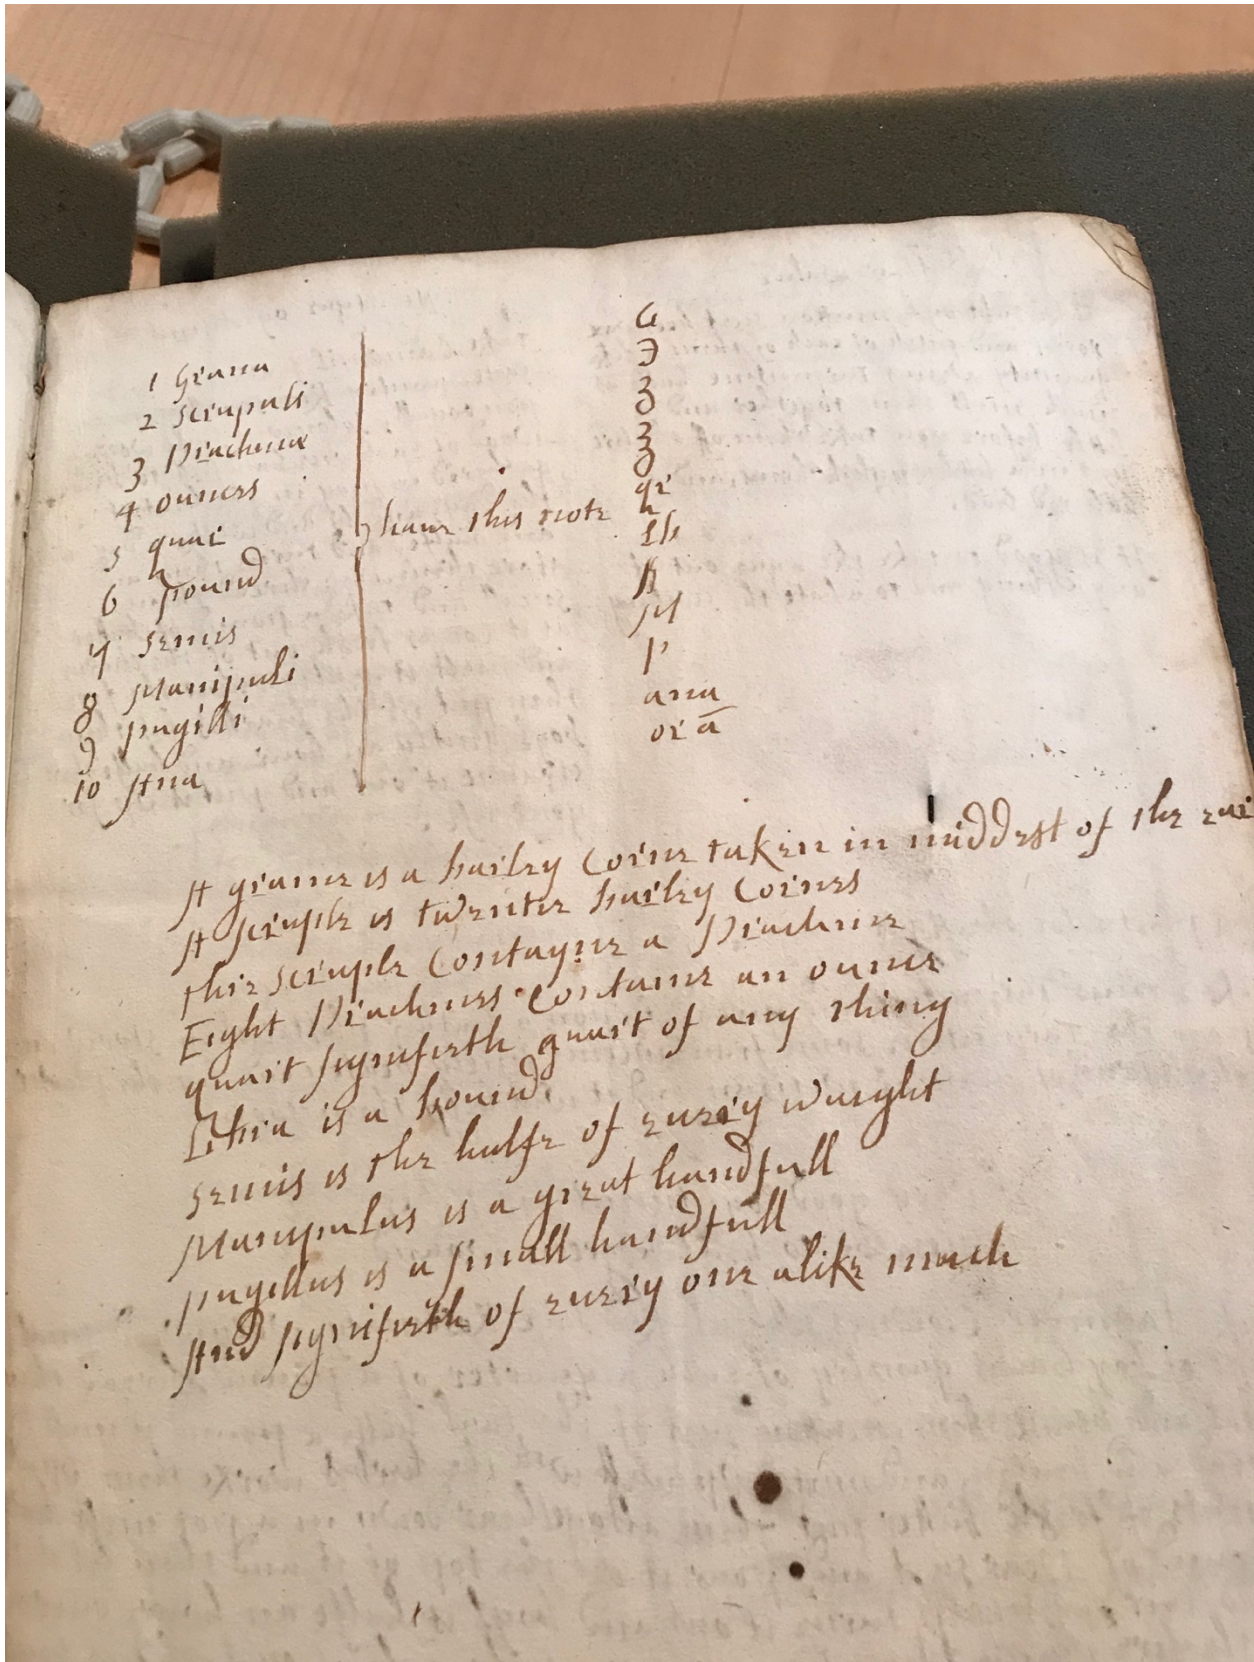 1 Grana
2 Scrupuli
3 Drachmæ
4 ounces
5 quar
6 pound
7 semis
8 Manipuli
9 pugilli
10 Ana
haue this note
G
℈
ʒ
℥
qr
lb
ß
M
P
ana
or ā
A graine is a barley Corne taken in middest of the
A scruple is twentie barley Cornes
thre scruple Contayne a Drachme
Eight Drachmes Containe an ounce
quart signifieth quart of any thing
Libra is a pound
Semis is the halfe of euery waight
Manipulus is a great handfull
pugillus is a small handfull
And signifieth of euery one alike much